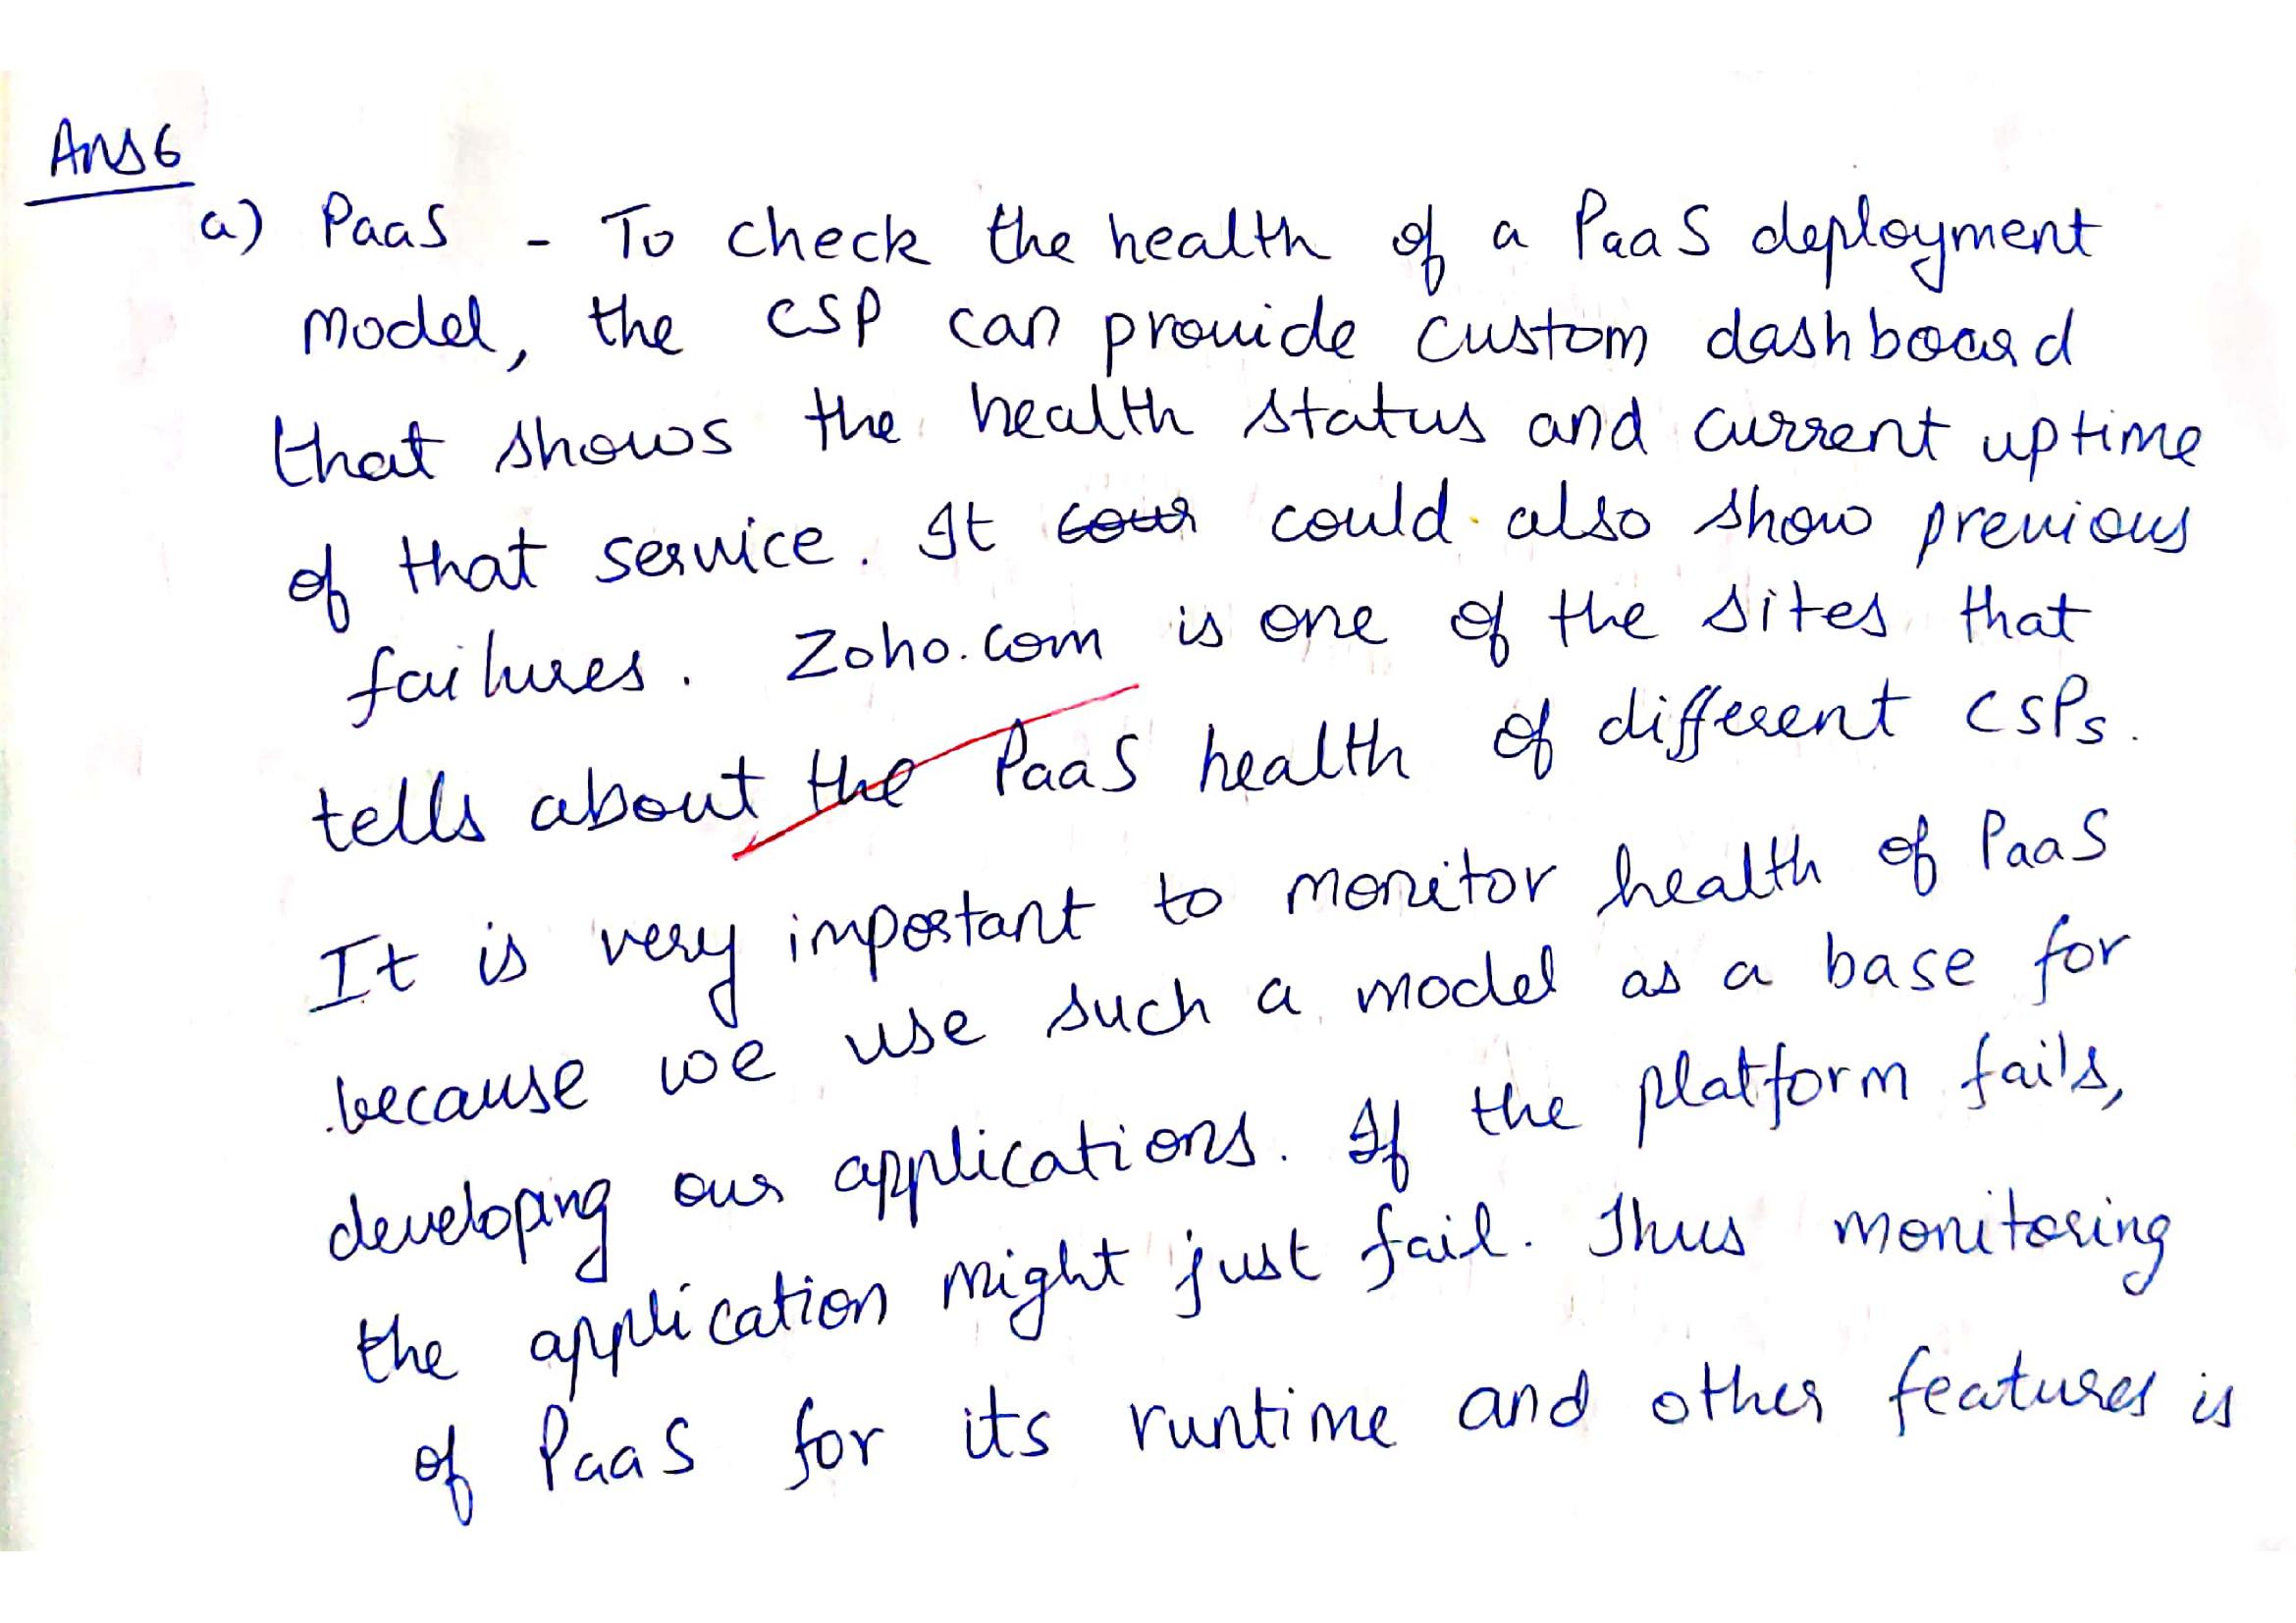 Ans 6
a) PaaS - To check the health of a PaaS deployment
model, the CSP can provide custom dashboard
that shows the health status and current uptime
of that service. It could also show previous
failures. Zoho.com is one of the sites that
tells about the PaaS health of different CSPs.
It is very important to monitor health of PaaS
because we use such a model as a base for
developing our applications. If the platform fails,
the application might just fail. Thus monitoring
of PaaS for its runtime and other features is